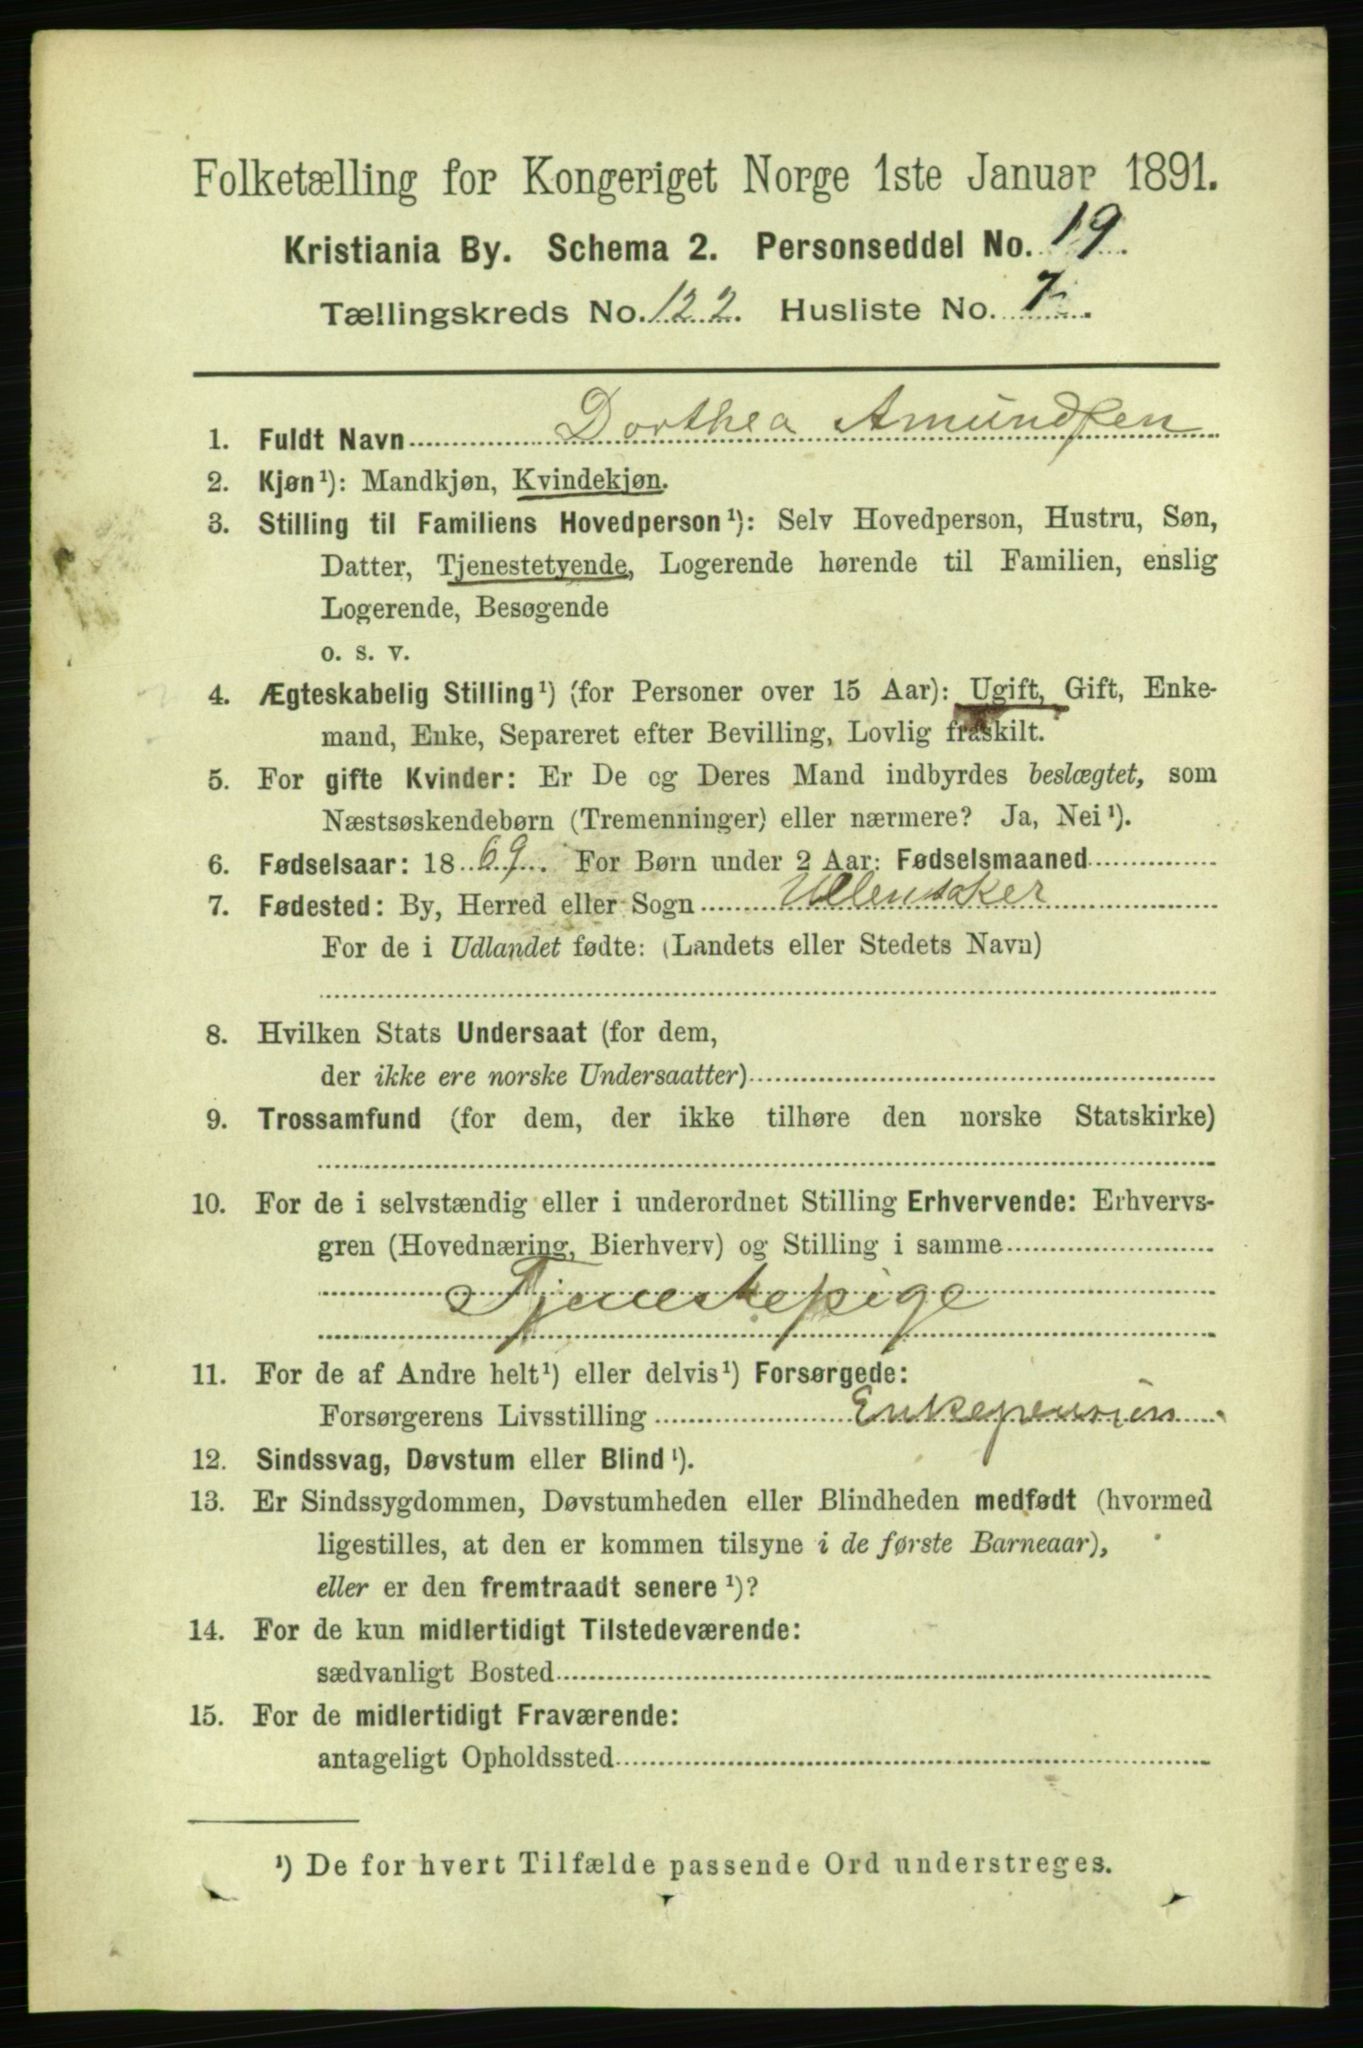 Folketælling for Kongeriget Norge 1ste Januar 1891.
Kristiania By. Schema 2. Personseddel No. 19.
Tællingskreds No. 122. Husliste No. 7.
1. Fuldt Navn Dorthea Amundsen
2. Kjøn¹): Mandkjøn, Kvindekjøn.
3. Stilling til Familiens Hovedperson¹): Selv Hovedperson, Hustru, Søn,
Datter, Tjenestetyende, Logerende hørende til Familien, enslig
Logerende, Besøgende
o. s. v.
4. Ægteskabelig Stilling¹) (for Personer over 15 Aar): Ugift, Gift, Enke-
mand, Enke, Separeret efter Bevilling, Lovlig fraskilt.
5. For gifte Kvinder: Er De og Deres Mand indbyrdes beslægtet, som
Næstsøskendebørn (Tremenninger) eller nærmere? Ja, Nei¹).
6. Fødselsaar: 1869. For Børn under 2 Aar: Fødselsmaaned
7. Fødested: By, Herred eller Sogn Ullensaker
For de i Udlandet fødte: (Landets eller Stedets Navn)
8. Hvilken Stats Undersaat (for dem,
der ikke ere norske Undersaatter)
9. Trossamfund (for dem, der ikke tilhøre den norske Statskirke)
10. For de i selvstændig eller i underordnet Stilling Erhvervende: Erhvervs-
gren (Hovednæring, Bierhverv) og Stilling i samme
Tjenestepige
11. For de af Andre helt¹) eller delvis¹) Forsørgede:
Forsørgerens Livsstilling Enkepension.
12. Sindssvag, Døvstum eller Blind¹).
13. Er Sindssygdommen, Døvstumheden eller Blindheden medfødt (hvormed
ligestilles, at den er kommen tilsyne i de første Barneaar),
eller er den fremtraadt senere¹)?
14. For de kun midlertidigt Tilstedeværende:
sædvanligt Bosted
15. For de midlertidigt Fraværende:
antageligt Opholdssted
¹) De for hvert Tilfælde passende Ord understreges.